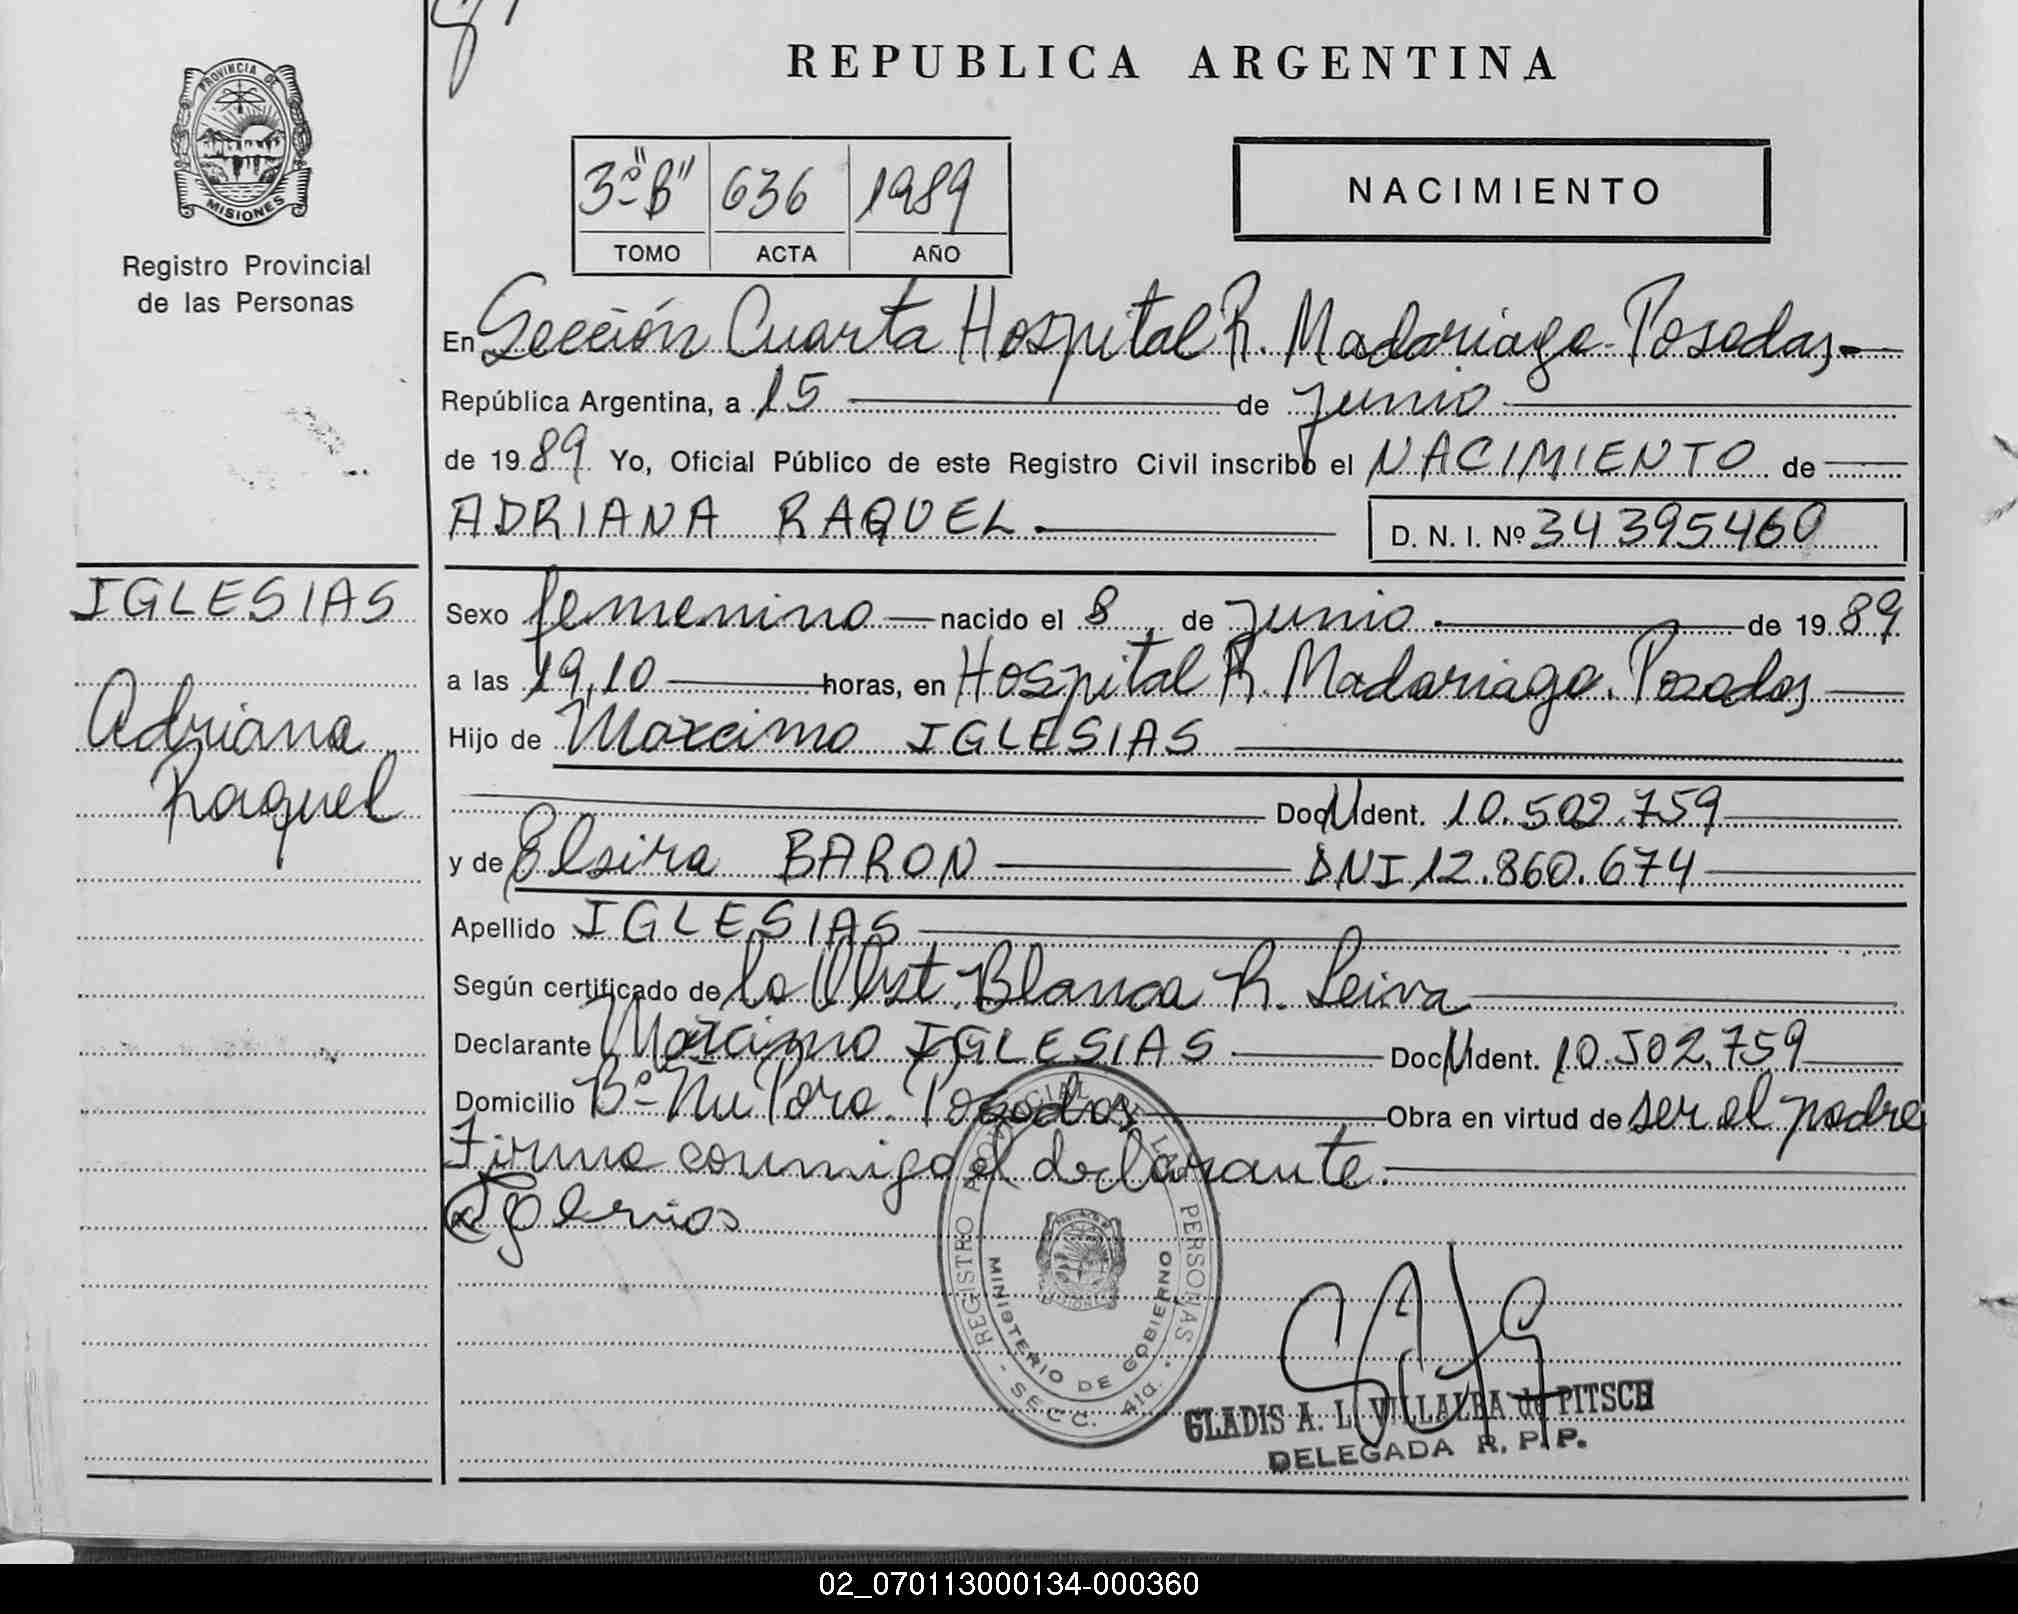 REPUBLICA ARGENTINA
PROVINCIA DE MISIONES
Registro Provincial
de las Personas
3º "B" 636 1989
TOMO ACTA AÑO
NACIMIENTO
En Sección Cuarta Hospital R. Madariaga - Posadas
República Argentina, a 15 de junio
de 1989 Yo, Oficial Público de este Registro Civil inscribo el NACIMIENTO de
ADRIANA RAQUEL. D. N. I. Nº 34395460
IGLESIAS
Adriana
Raquel
Sexo femenino nacido el 8 de junio de 1989
a las 19,10 horas, en Hospital R. Madariaga. Posadas
Hijo de Maxcimo IGLESIAS
Doc. Ident. 10.502.759
y de Elsira BARON DNI 12.860.674
Apellido IGLESIAS
Según certificado de la Obst. Blanca R. Leiva
Declarante Maxcimo IGLESIAS Doc. Ident. 10.502.759
Domicilio Bº Ñu Pora. Posadas Obra en virtud de ser el padre
Firma conmigo el declarante.
Iglesias
REGISTRO PROVINCIAL DE LAS PERSONAS
MINISTERIO DE GOBIERNO
- SECC. 4ta. -
GLADIS A. L. VILLALBA de PITSCH
DELEGADA R. P. P.
02_070113000134-000360